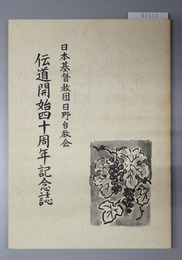 日本基督教団日野台教会
伝道開始四十周年記念誌